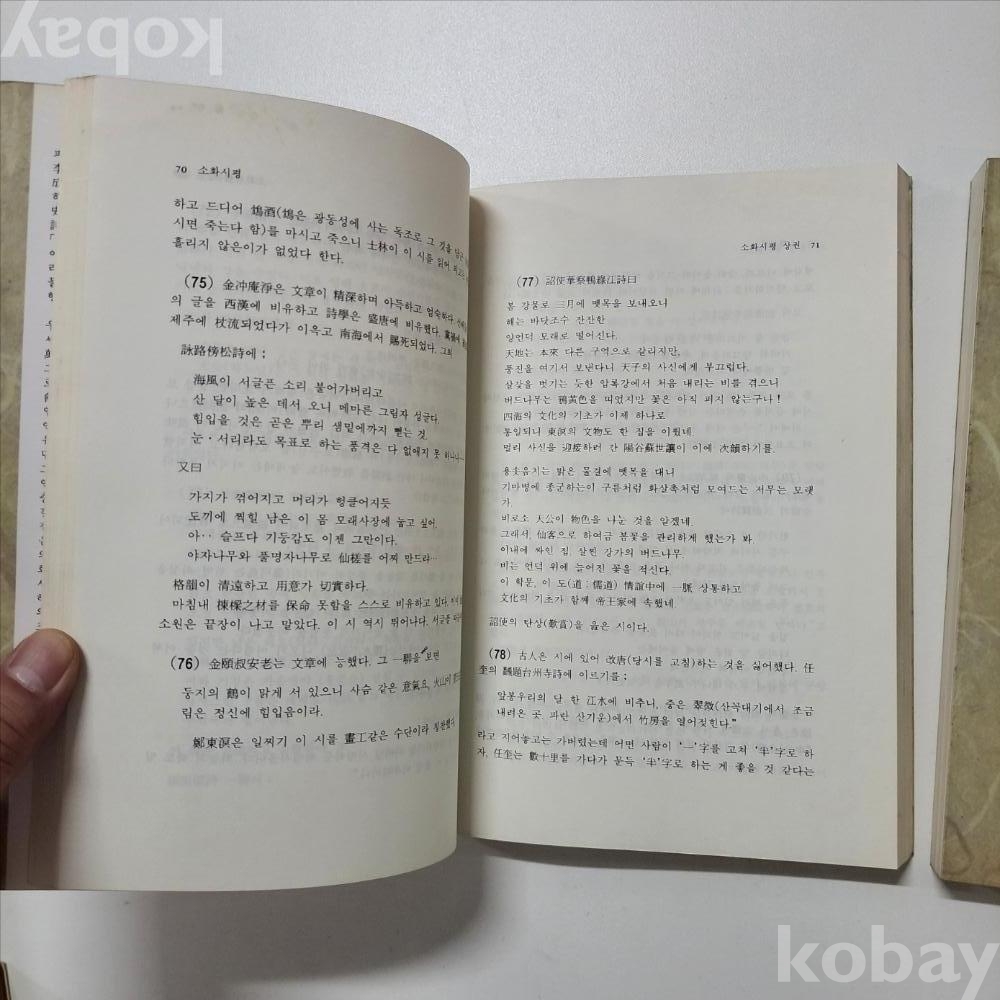 kobay
70 소화시평
하고 드디어 鴆酒(鴆은 광동성에 사는 독조로 그 깃을 담근
시면 죽는다 함)를 마시고 죽으니 士林이 이 시를 읽어,
흘리지 않은이가 없었다 한다.
(75) 金冲庵淨은 文章이 精深하며 아득하고 엄숙하다.
의 글을 西漢에 비유하고 詩學은 盛唐에 비유했다.
제주에 杖流되었다가 이윽고 南海에서 賜死되었다. 그의
詠路傍松詩에 ;
海風이 서글픈 소리 불어가버리고
산 달이 높은 데서 오니 메마른 그림자 성글다.
힘입을 것은 곧은 뿌리 샘밑에까지 뻗는 것.
눈·서리라도 목표로 하는 품격은 다 없애지 못 하나니─
又曰
가지가 꺾어지고 머리가 헝클어지듯
도끼에 찍힐 남은 이 몸 모래사장에 눕고 싶어.
아‥ 슬프다 기둥감도 이젠 그만이다.
야자나무와 풀명자나무로 仙槎를 어찌 만드랴…
格韻이 清遠하고 用意가 切實하다.
마침내 棟樑之材를 保命 못함을 스스로 비유하고 있다.
소원은 끝장이 나고 말았다. 이 시 역시 뛰어나다.
(76) 金頤叔安老는 文章에 능했다. 그 一聯을 보면
둥지의 鶴이 맑게 서 있으니 사슴 같은 意氣요, 火山이
림은 정신에 힘입음이라.
鄭東溟은 일찌기 이 시를 畫工같은 수단이라 칭찬했다.
소화시평 상권 71
(77) 詔使華察鴨綠江詩曰
봄 강물로 三月에 뗏목을 보내오니
해는 바닷조수 잔잔한
일언덕 모래로 떨어진다.
天地는 本來 다른 구역으로 갈리지만,
풍진을 여기서 보낸다니 天子의 사신에게 부끄럽다.
살갗을 벗기는 듯한 압록강에서 처음 내리는 비를 겪으니
버드나무는 鵝黃色을 띠었지만 꽃은 아직 피지 않는구나!
四海의 文化의 기초가 이제 하나로
통일되니 東溟의 文物도 한 집을 이뤘네
멀리 사신을 迎接하러 간 陽谷蘇世讓이 이에 次韻하기를.
용솟음치는 밝은 물결에 뗏목을 대니
기마병에 종군하는이 구름처럼 화살촉처럼 모여드는 저무는 모랫
가.
비로소 天公이 物色을 나눈 것을 알겠네.
그래서, 仙客으로 하여금 봄꽃을 관리하게 했는가 봐.
이내에 싸인 집, 살찐 강가의 버드나무.
비는 언덕 위에 늘어진 꽃을 적신다.
이 학문, 이 도(道 ; 儒道) 情誼中에 一脈 상통하고
文化의 기초가 함께 帝王家에 속했네.
詔使의 탄상(歎賞)을 읊은 시이다.
(78) 古人은 시에 있어 改唐(당시를 고침)하는 것을 싫어했다. 任
奎의 題台州寺詩에 이르기를 ;
앞봉우리의 달 한 江水에 비추니, 중은 翠微(산꼭대기에서 조금
내려온 곳, 파란 산기운)에서 竹房을 열어젖힌다."
라고 지어놓고는 가버렸는데 어떤 사람이 '一'字를 고쳐 '半'字로 하
자, 任奎는 數十里를 가다가 문득 '半'字로 하는 게 좋을 것 같다는
kobay